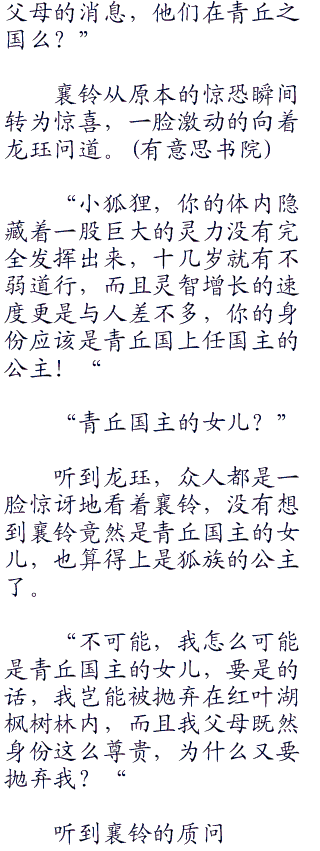 父母的消息，他们在青丘之
国么？”
襄铃从原本的惊恐瞬间
转为惊喜，一脸激动的向着
龙珏问道。(有意思书院)
“小狐狸，你的体内隐
藏着一股巨大的灵力没有完
全发挥出来，十几岁就有不
弱道行，而且灵智增长的速
度更是与人差不多，你的身
份应该是青丘国上任国主的
公主！“
“青丘国主的女儿？”
听到龙珏，众人都是一
脸惊讶地看着襄铃，没有想
到襄铃竟然是青丘国主的女
儿，也算得上是狐族的公主
了。
“不可能，我怎么可能
是青丘国主的女儿，要是的
话，我岂能被抛弃在红叶湖
枫树林内，而且我父母既然
身份这么尊贵，为什么又要
抛弃我？“
听到襄铃的质问